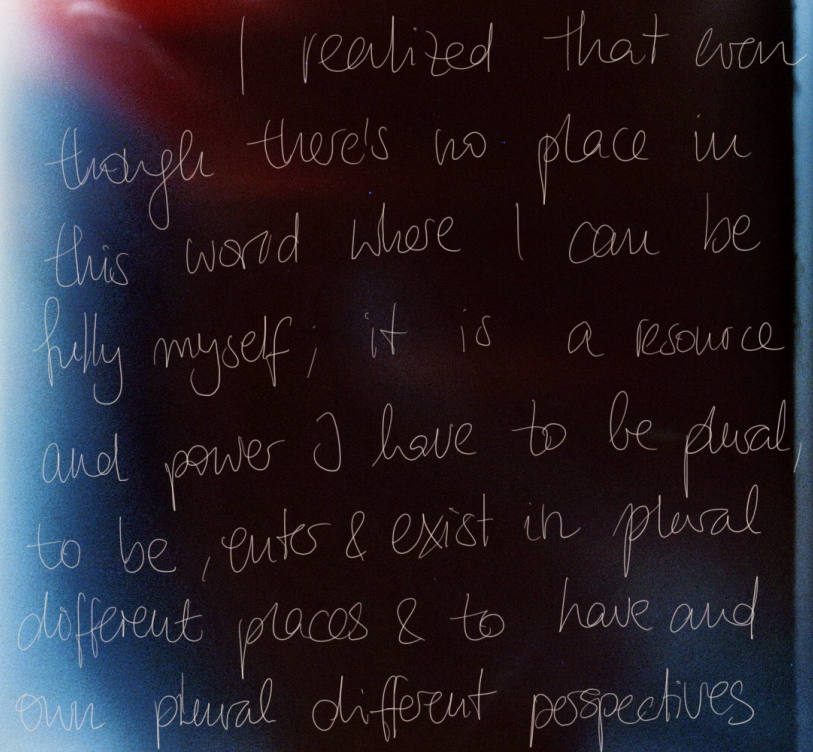 I realized that even
though there's no place in
this world where I can be
fully myself; it is a resource
and power I have to be plural,
to be, enter & exist in plural
different places & to have and
own plural different perspectives